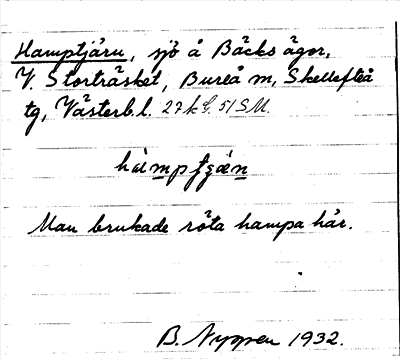 Hamptjärn, sjö å Bäcks ägor,
V. Storträsket, Bureå sn, Skellefteå
tg, Västerb.l. 27k G. 51 SM.
hàmptʃǽn
Man brukade röta hampa här.
B. Nygren 1932.